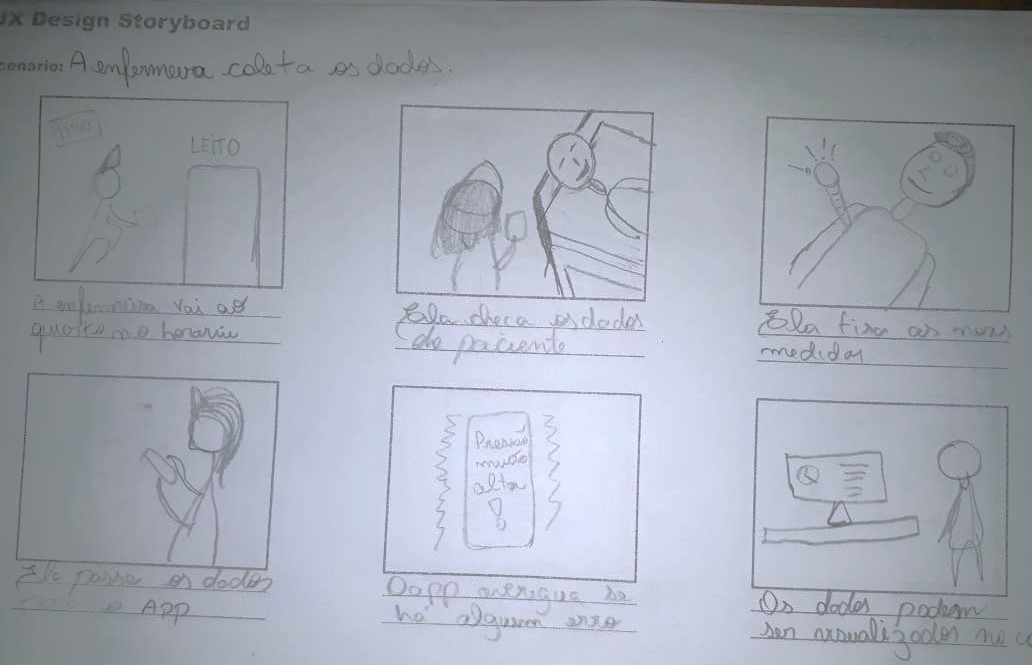 UX Design Storyboard
cenario: A enfermeira coleta os dados.
LEITO
A enfermeira vai ao
quarto no horario
Ela checa os dados
do paciente
Ela tira as novas
medidas
Pressão
muito
alta
!
Ela passa os dados
APP
O app averigua se
há algum erro
Os dados podem
ser visualizados no